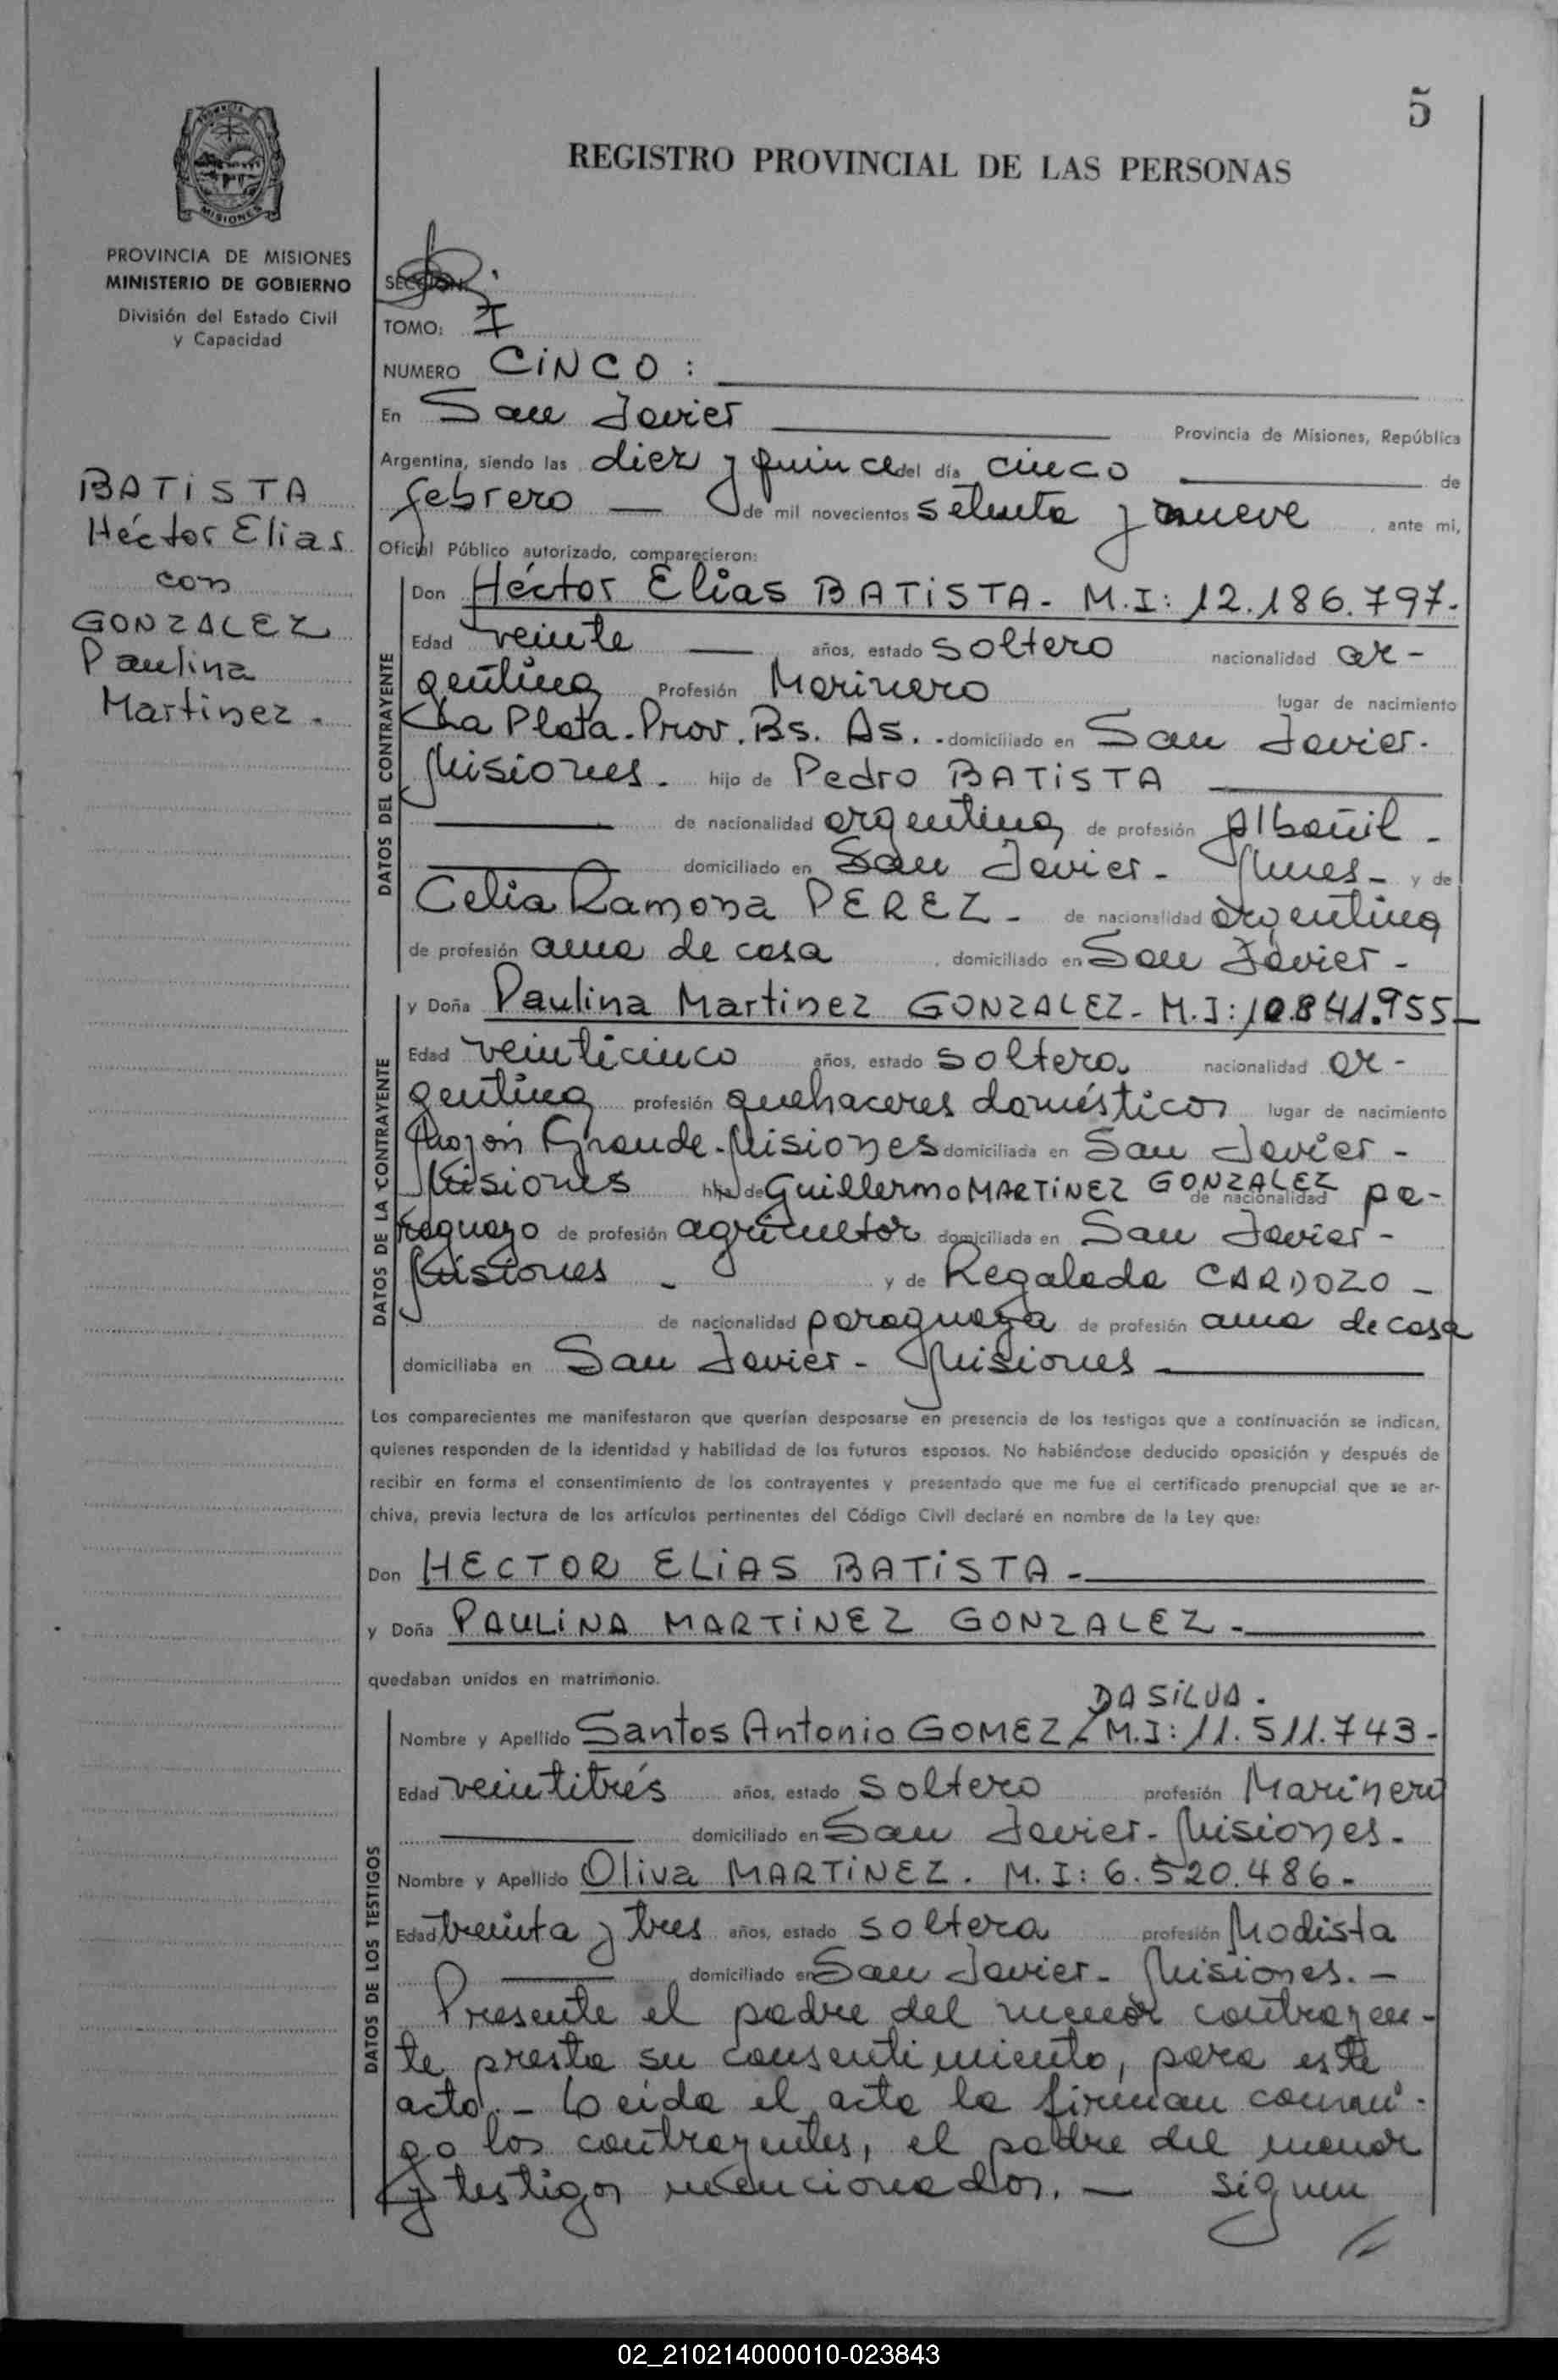 5
REGISTRO PROVINCIAL DE LAS PERSONAS
MISIONES
PROVINCIA DE MISIONES
MINISTERIO DE GOBIERNO
División del Estado Civil
y Capacidad
BATISTA
Héctor Elias
con
GONZALEZ
Paulina
Martinez.
SECCION:
TOMO: I
NUMERO CINCO:
En San Javier Provincia de Misiones, República
Argentina, siendo las diez y quince del día cinco de
febrero de mil novecientos setenta y nueve, ante mi,
Oficial Público autorizado, comparecieron:
DATOS DEL CONTRAYENTE
Don Héctor Elias BATISTA - M.I: 12.186.797.
Edad veinte años, estado soltero nacionalidad ar-
gentina Profesión Marinero lugar de nacimiento
La Plata. Prov. Bs. As. - domiciliado en San Javier.
Misiones. hijo de Pedro BATISTA
de nacionalidad argentina, de profesión Albañil -
domiciliado en San Javier - Mnes - y de
Celia Ramona PEREZ - de nacionalidad argentina
de profesión ama de casa, domiciliado en San Javier -
DATOS DE LA CONTRAYENTE
y Doña Paulina Martinez GONZALEZ - M.I: 10.841.955 -
Edad veinticinco años, estado soltera nacionalidad ar-
gentina profesión quehaceres domésticos lugar de nacimiento
Mojón Grande - Misiones domiciliada en San Javier -
Misiones hija de Guillermo MARTINEZ GONZALEZ de nacionalidad pa-
raguayo de profesión agricultor domiciliada en San Javier -
Misiones - y de Regalada CARDOZO -
de nacionalidad paraguaya de profesión ama de casa
domiciliaba en San Javier - Misiones
Los comparecientes me manifestaron que querían desposarse en presencia de los testigos que a continuación se indican,
quienes responden de la identidad y habilidad de los futuros esposos. No habiéndose deducido oposición y después de
recibir en forma el consentimiento de los contrayentes y presentado que me fue el certificado prenupcial que se ar-
chiva, previa lectura de los artículos pertinentes del Código Civil declaré en nombre de la Ley que:
Don HECTOR ELIAS BATISTA -
y Doña PAULINA MARTINEZ GONZALEZ -
quedaban unidos en matrimonio.
DATOS DE LOS TESTIGOS
DA SILVA.
Nombre y Apellido Santos Antonio GOMEZ / M.I: 11.511.743 -
Edad veintitrés años, estado soltero profesión Marinero
domiciliado en San Javier - Misiones.
Nombre y Apellido Oliva MARTINEZ. M.I: 6.520.486 -
Edad treinta y tres años, estado soltera profesión Modista
domiciliado en San Javier - Misiones. -
Presente el padre del menor contrayen-
te presta su consentimiento, para este
acto. - Leída el acta la firman conmi-
go los contrayentes, el padre del menor
y testigos mencionados. - siguen
//
02_210214000010-023843